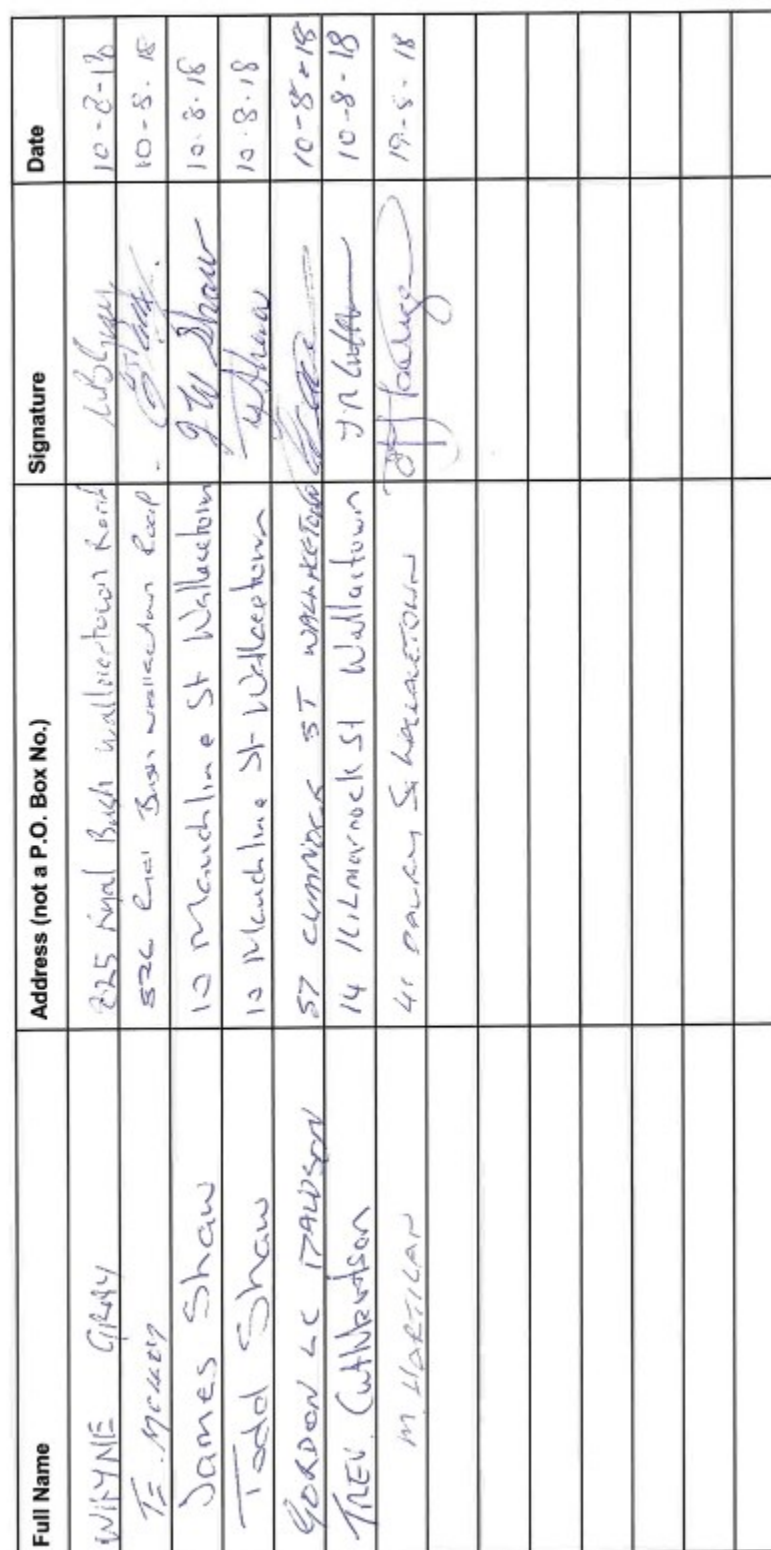 Full Name Address (not a P.O. Box No.) Signature Date
WAYNE GRAY 225 Ryal Bush Wallacetown Road 10-8-18
T.E. 522 Ryal Bush Wallacetown Road 10-8-18
James Shaw 10 Mauchline St Wallacetown J W Shaw 10.8.18
Todd Shaw 10 Mauchline St Wallacetown T Shaw 10.8.18
GORDON DAVIDSON 57 CUMNOCK ST WALLACETOWN 10-8-18
TREV. Cuthbertson 14 Kilmarnock St Wallacetown 10-8-18
M HARTIGAN 41 DALRY St WALLACETOWN 19-8-18